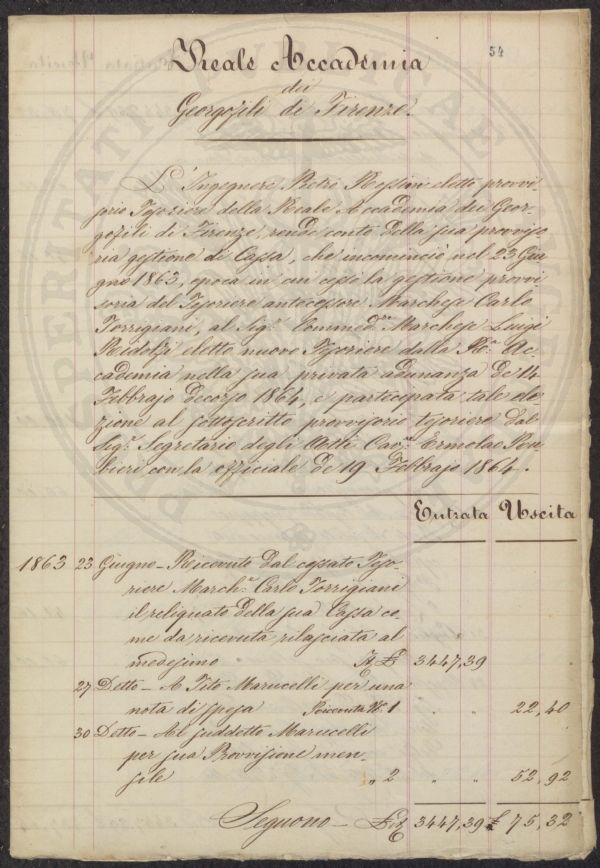 54
Reale Accademia
dei
Georgofili di Firenze.
L'Ingegnere Pietro Rossini eletto provvi
prio Tesoriere della Reale Accademia dei Geor-
gofili di Firenze, rende conto della sua provviso
ria gestione di Cassa, che incominciò nel 23 Giu
gno 1863, epoca in cui cessò la gestione provvi
soria del Tesoriere antecessore Marchese Carlo
Torrigiani, al Sig.r Commend.re Marchese Luigi
Ridolfi eletto nuovo Tesoriere dalla R.e Ac-
cademia nella sua privata adunanza de 14
Febbrajo decorso 1864, e partecipata tale ele
zione al sottoscritto provvisorio tesoriere dal
Sig.r Segretario degli Atti Cav.re Ermolao Rub
bieri con la officiale de 19 Febbrajo 1864.
Entrata Uscita
1863 23 Giugno – Ricevuto dal cessato Teso-
riere March.e Carlo Torrigiani
il reliquato della sua Cassa co-
me da ricevuta rilasciata al
medesimo It £ 3447,39
27 Detto – A Tito Marucelli per una
nota di spesa Ricevuta N.1 " " 22,40
30 Detto – Al suddetto Marucelli
per sua Provvisione men-
sile " 2 " " 52,92
Seguono – £it 3447,39 £ 75,32